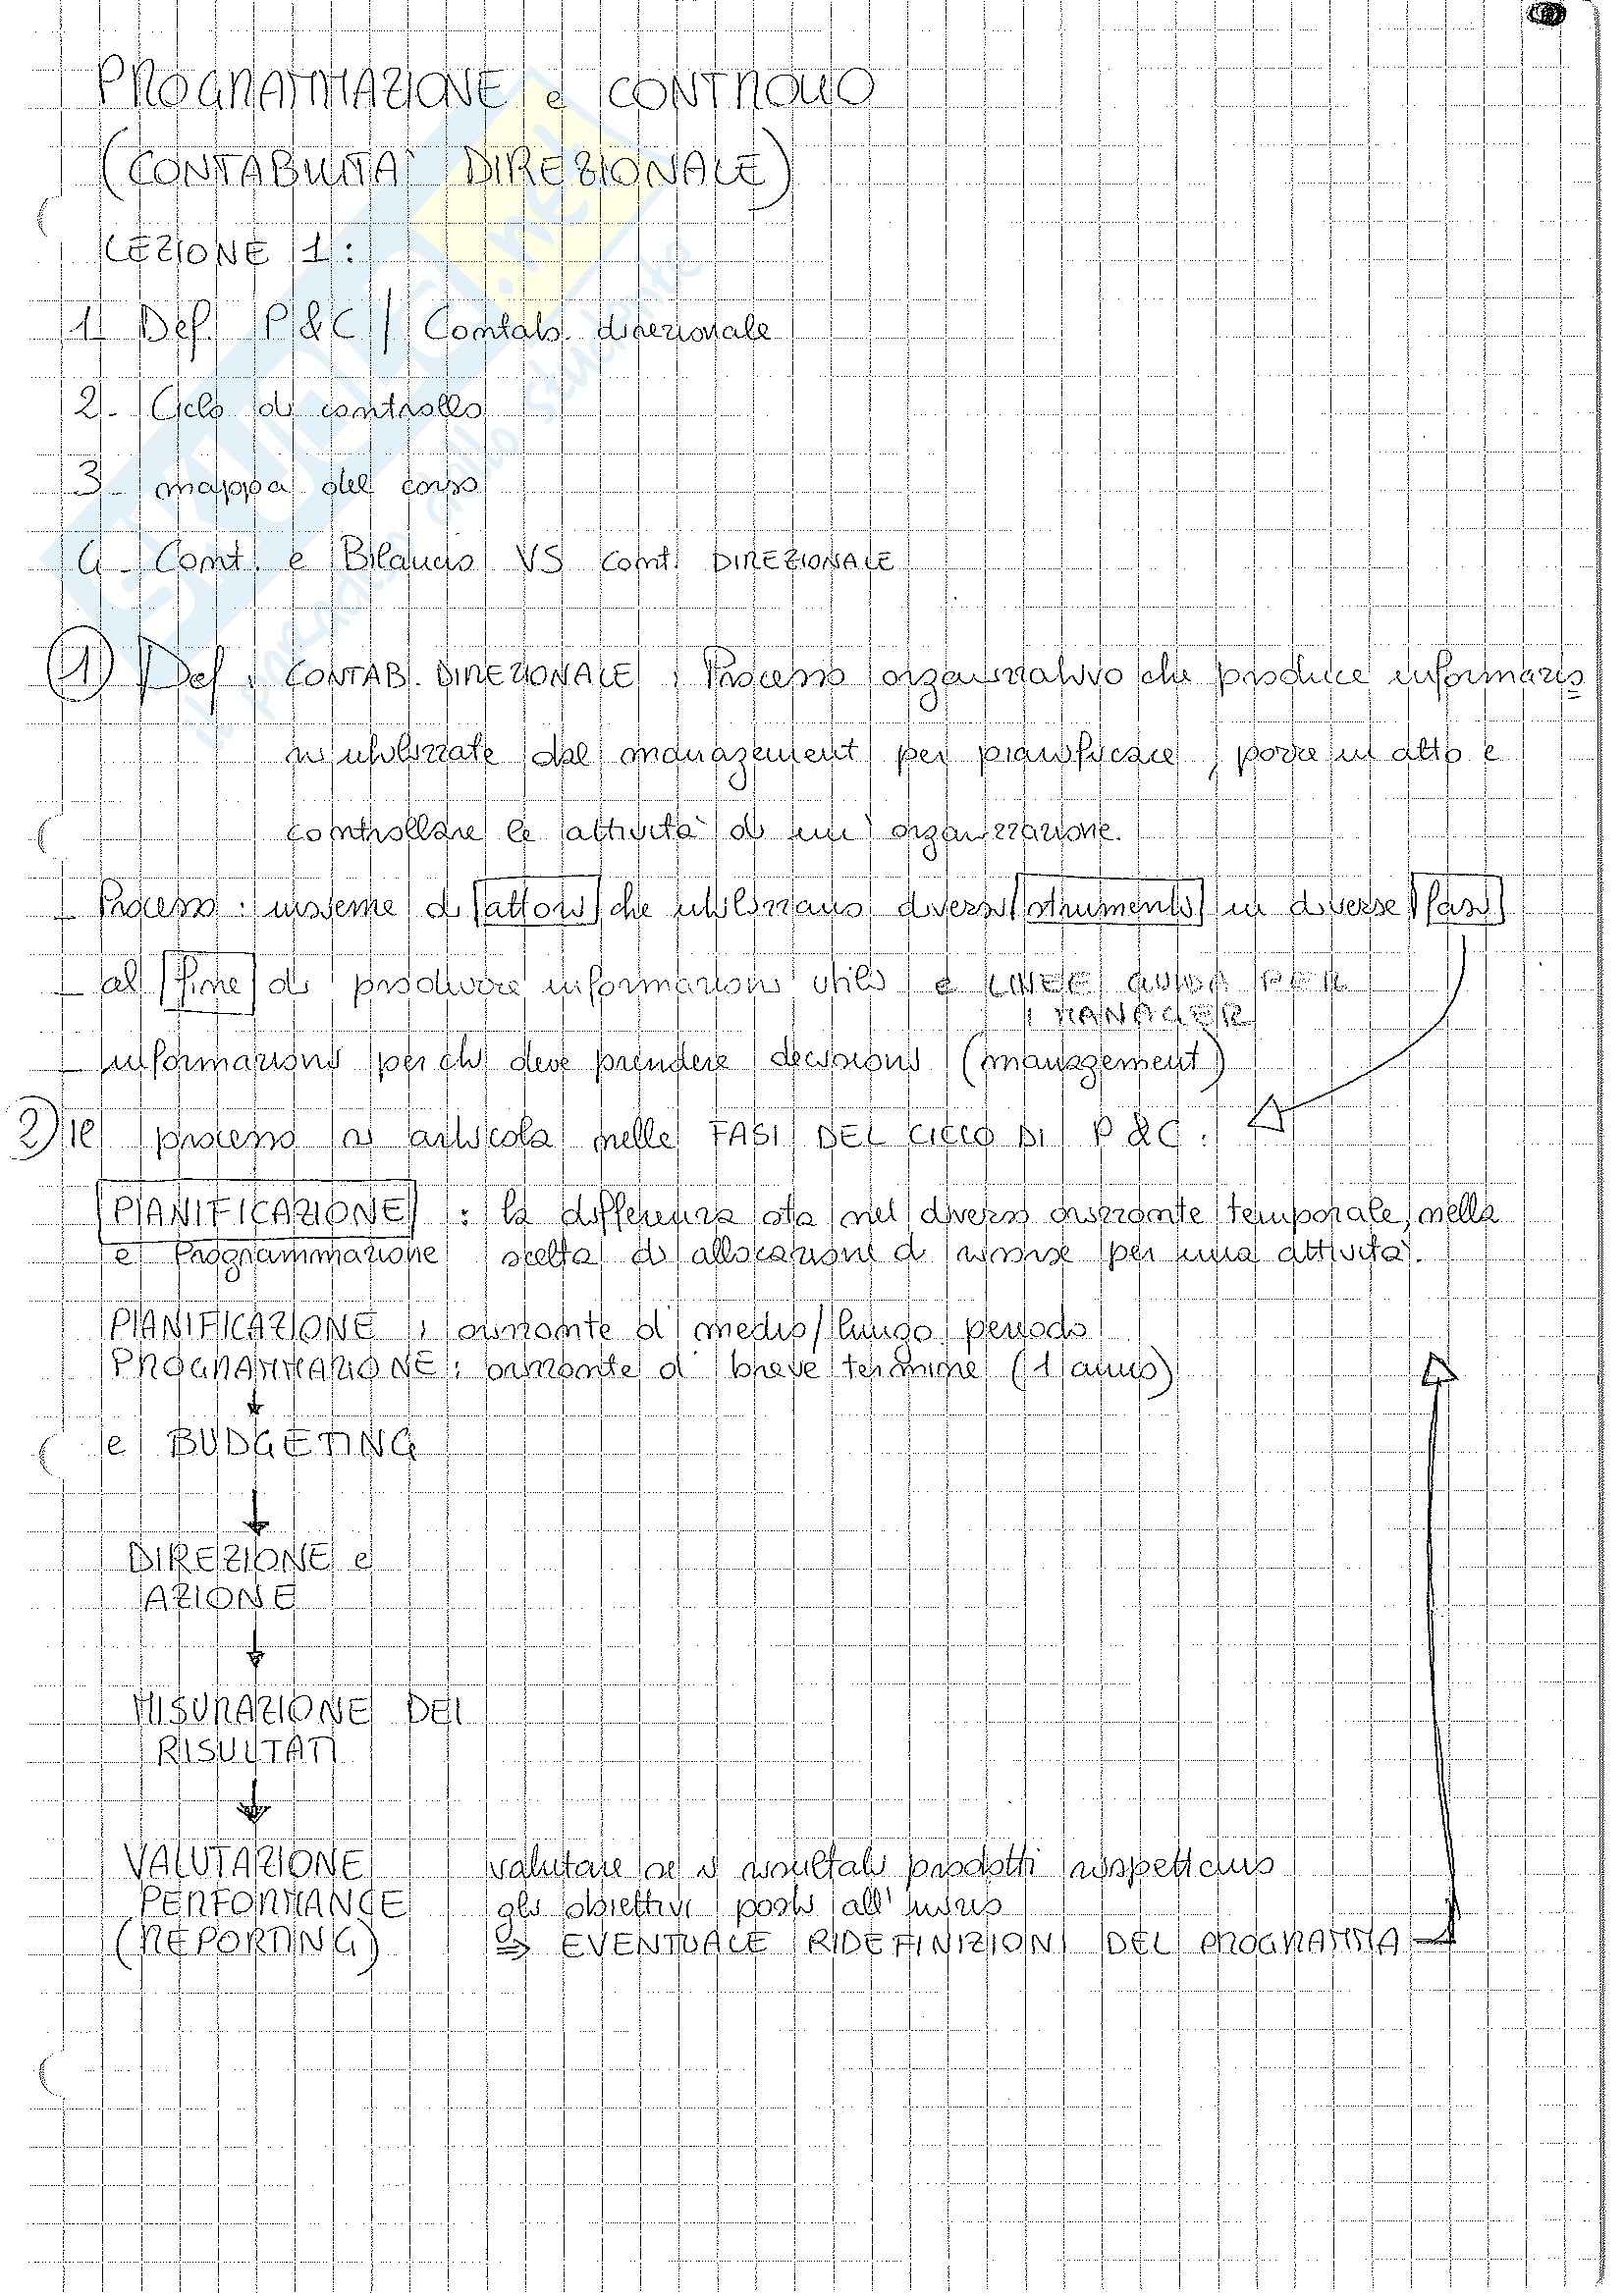 PROGRAMMAZIONE e CONTROLLO
(CONTABILITÀ DIREZIONALE)
LEZIONE 1:
1 Def. P&C / Contab. direzionale
2- Ciclo di controllo
3- mappa del corso
4- Cont. e Bilancio VS cont. DIREZIONALE
1) Def: CONTAB. DIREZIONALE: Processo organizzativo che produce informazio
ni utilizzate dal management per pianificare, porre in atto e
controllare le attività di un'organizzazione.
- Processo: insieme di attori che utilizzano diversi strumenti in diverse fasi
- al fine di produrre informazioni utili e LINEE GUIDA PER
I MANAGER
- informazioni per chi deve prendere decisioni (management)
2) il processo si articola nelle FASI DEL CICLO DI P&C:
PIANIFICAZIONE : la differenza sta nel diverso orizzonte temporale, nella
e Programmazione scelta di allocazione di risorse per una attività.
PIANIFICAZIONE: orizzonte di medio/lungo periodo
PROGRAMMAZIONE: orizzonte di breve termine (1 anno)
e BUDGETING
DIREZIONE e
AZIONE
MISURAZIONE DEI
RISULTATI
VALUTAZIONE valutare se i risultati prodotti rispettano
PERFORMANCE gli obiettivi posti all'inizio
(REPORTING) ⇒ EVENTUALE RIDEFINIZIONI DEL PROGRAMMA